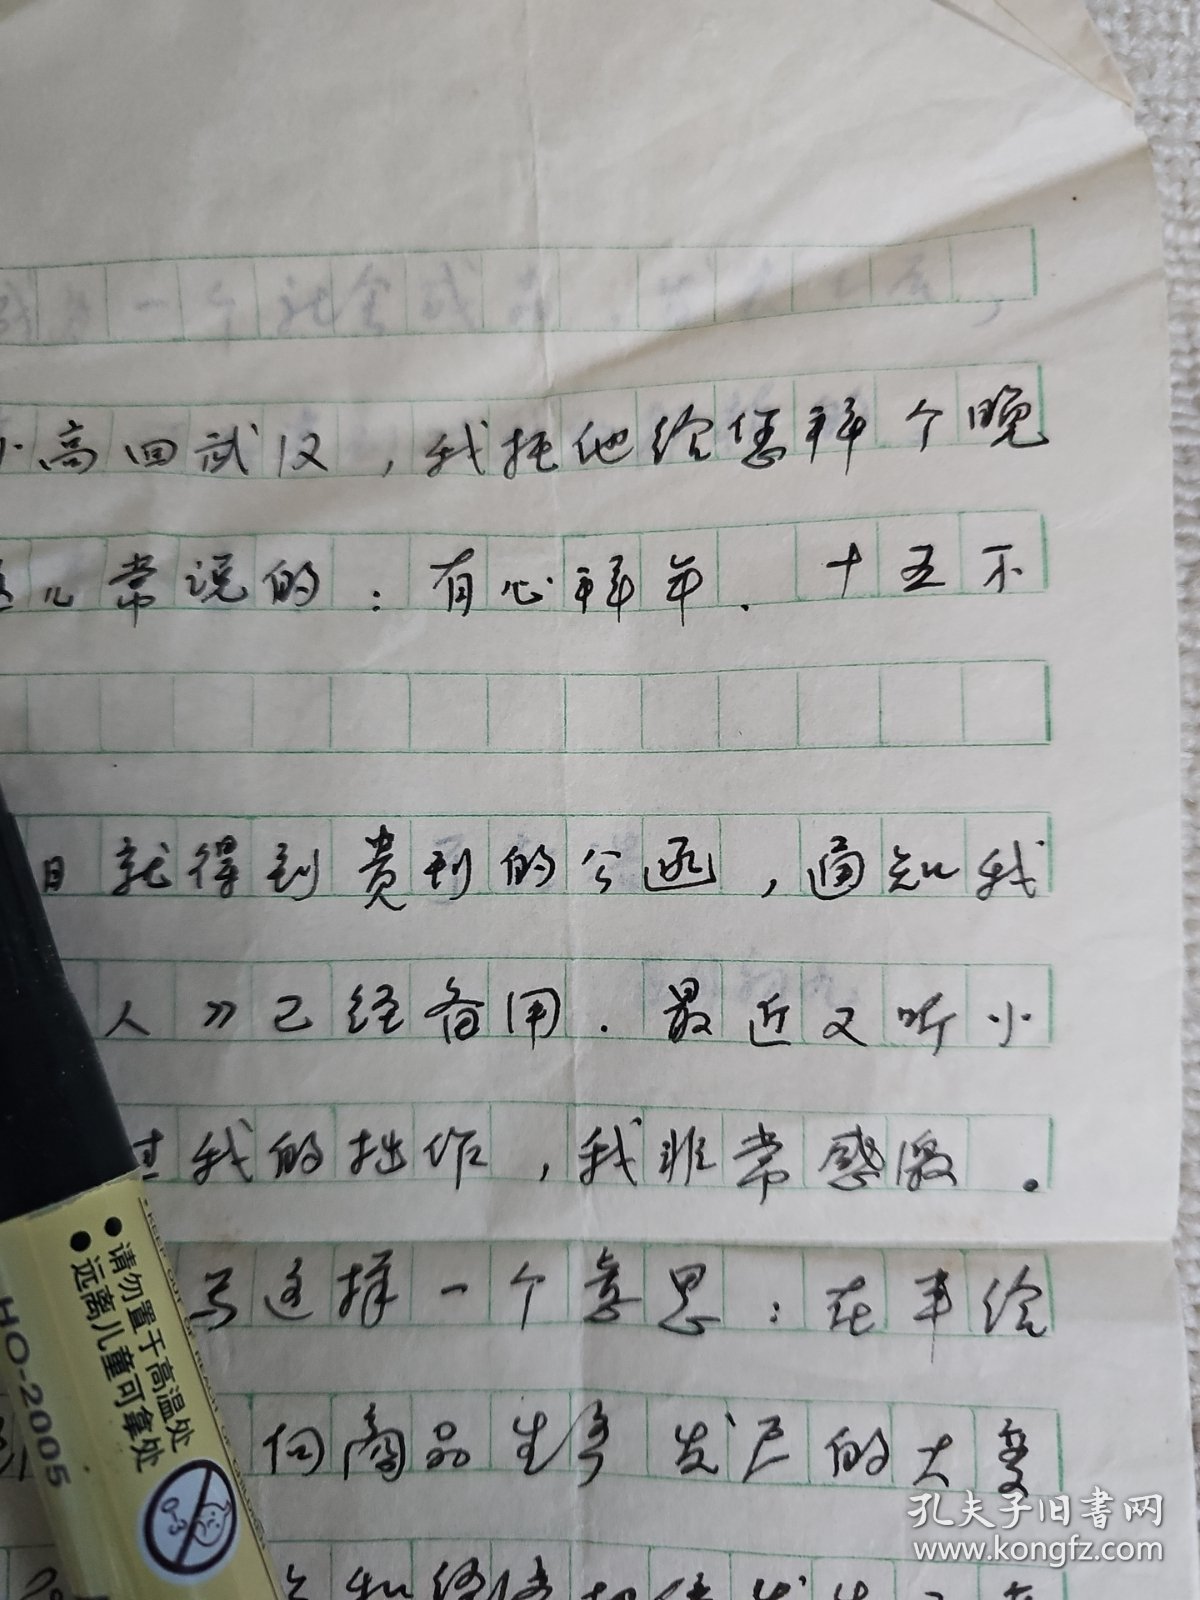 一个社会成
小高回武汉，我托他给您拜个晚
儿常说的：有心拜年．十五不
日就得到贵刊的公函，通知我
人》已经备用．最近又听小
过我的拙作，我非常感激．
写这样一个意思：在丰给
向商品生产发展的大变
请勿置于高温处
远离儿童可拿处
KEEP OUT OF REACH OF CHILDREN
HO-2005
孔夫子旧书网
www.kongfz.com